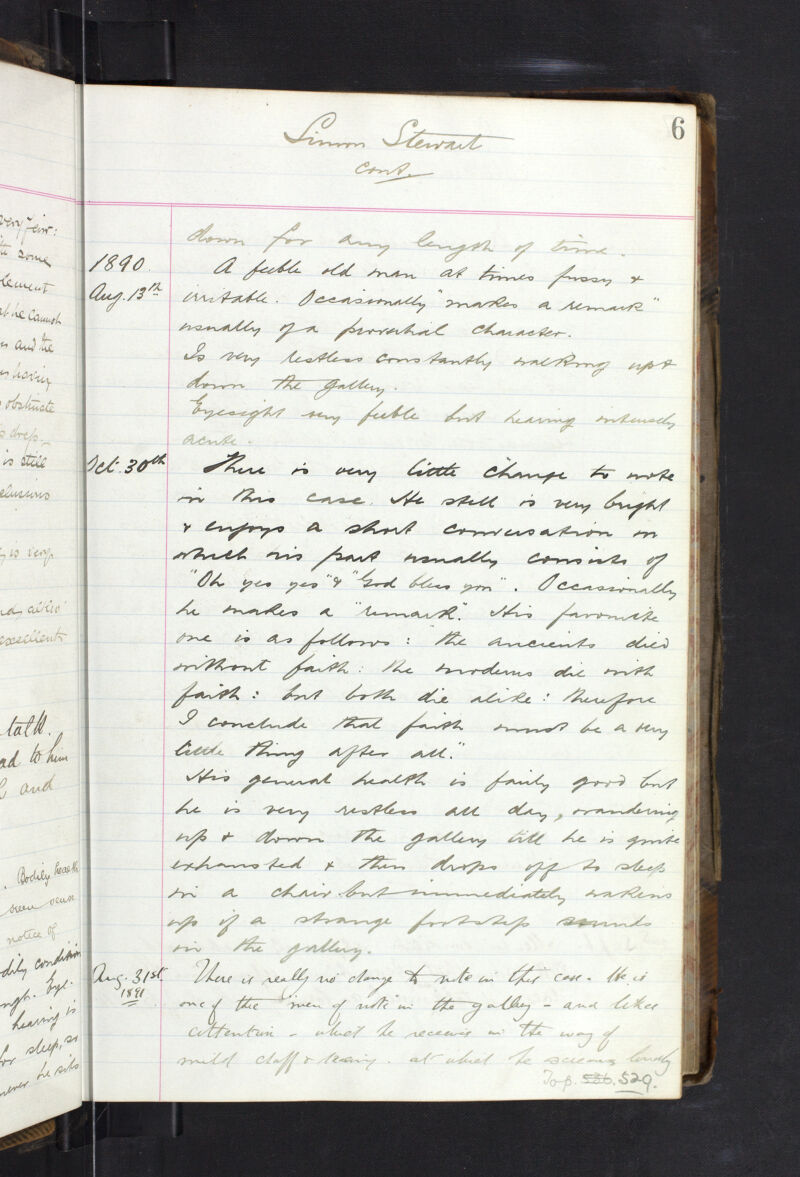 very few:
some
lement
at he cannot
and the
having
obstinate
is still
elusions
is very
excellent
talk.
ad to him
and
. Bodily health
been
notice of
dily condition
ough. Eye-
hearing is
for sleep, so
never he sits
6
Simon Stewart
cont.
down for any length of time.
1890. A feeble old man at times fussy &
Aug. 13th irritable. Occasionally "makes a remark"
usually of a proverbial character.
Is very restless constantly walking up &
down the gallery.
Eyesight very feeble but hearing intensely
acute.
Oct. 30th There is very little change to note
in this case. He still is very bright
& enjoys a short conversation in
which his part usually consists of
"Oh yes yes" & "God bless you". Occasionally
he makes a "remark". His favourite
one is as follows: "the ancients died
without faith: the moderns die with
faith: but both die alike: therefore
I conclude that faith must be a very
little thing after all."
His general health is fairly good but
he is very restless all day, wandering
up & down the gallery till he is quite
exhausted & then drops off to sleep
in a chair but immediately wakens
up if a strange footstep sounds
in the gallery.
Aug. 31st There is really no change to note in this case. He is
1891 one of the men of note in the gallery - and likes
attention - which he receives in the way of
mild chaff & teasing - at which he screams loudly
To p. 536. 529.